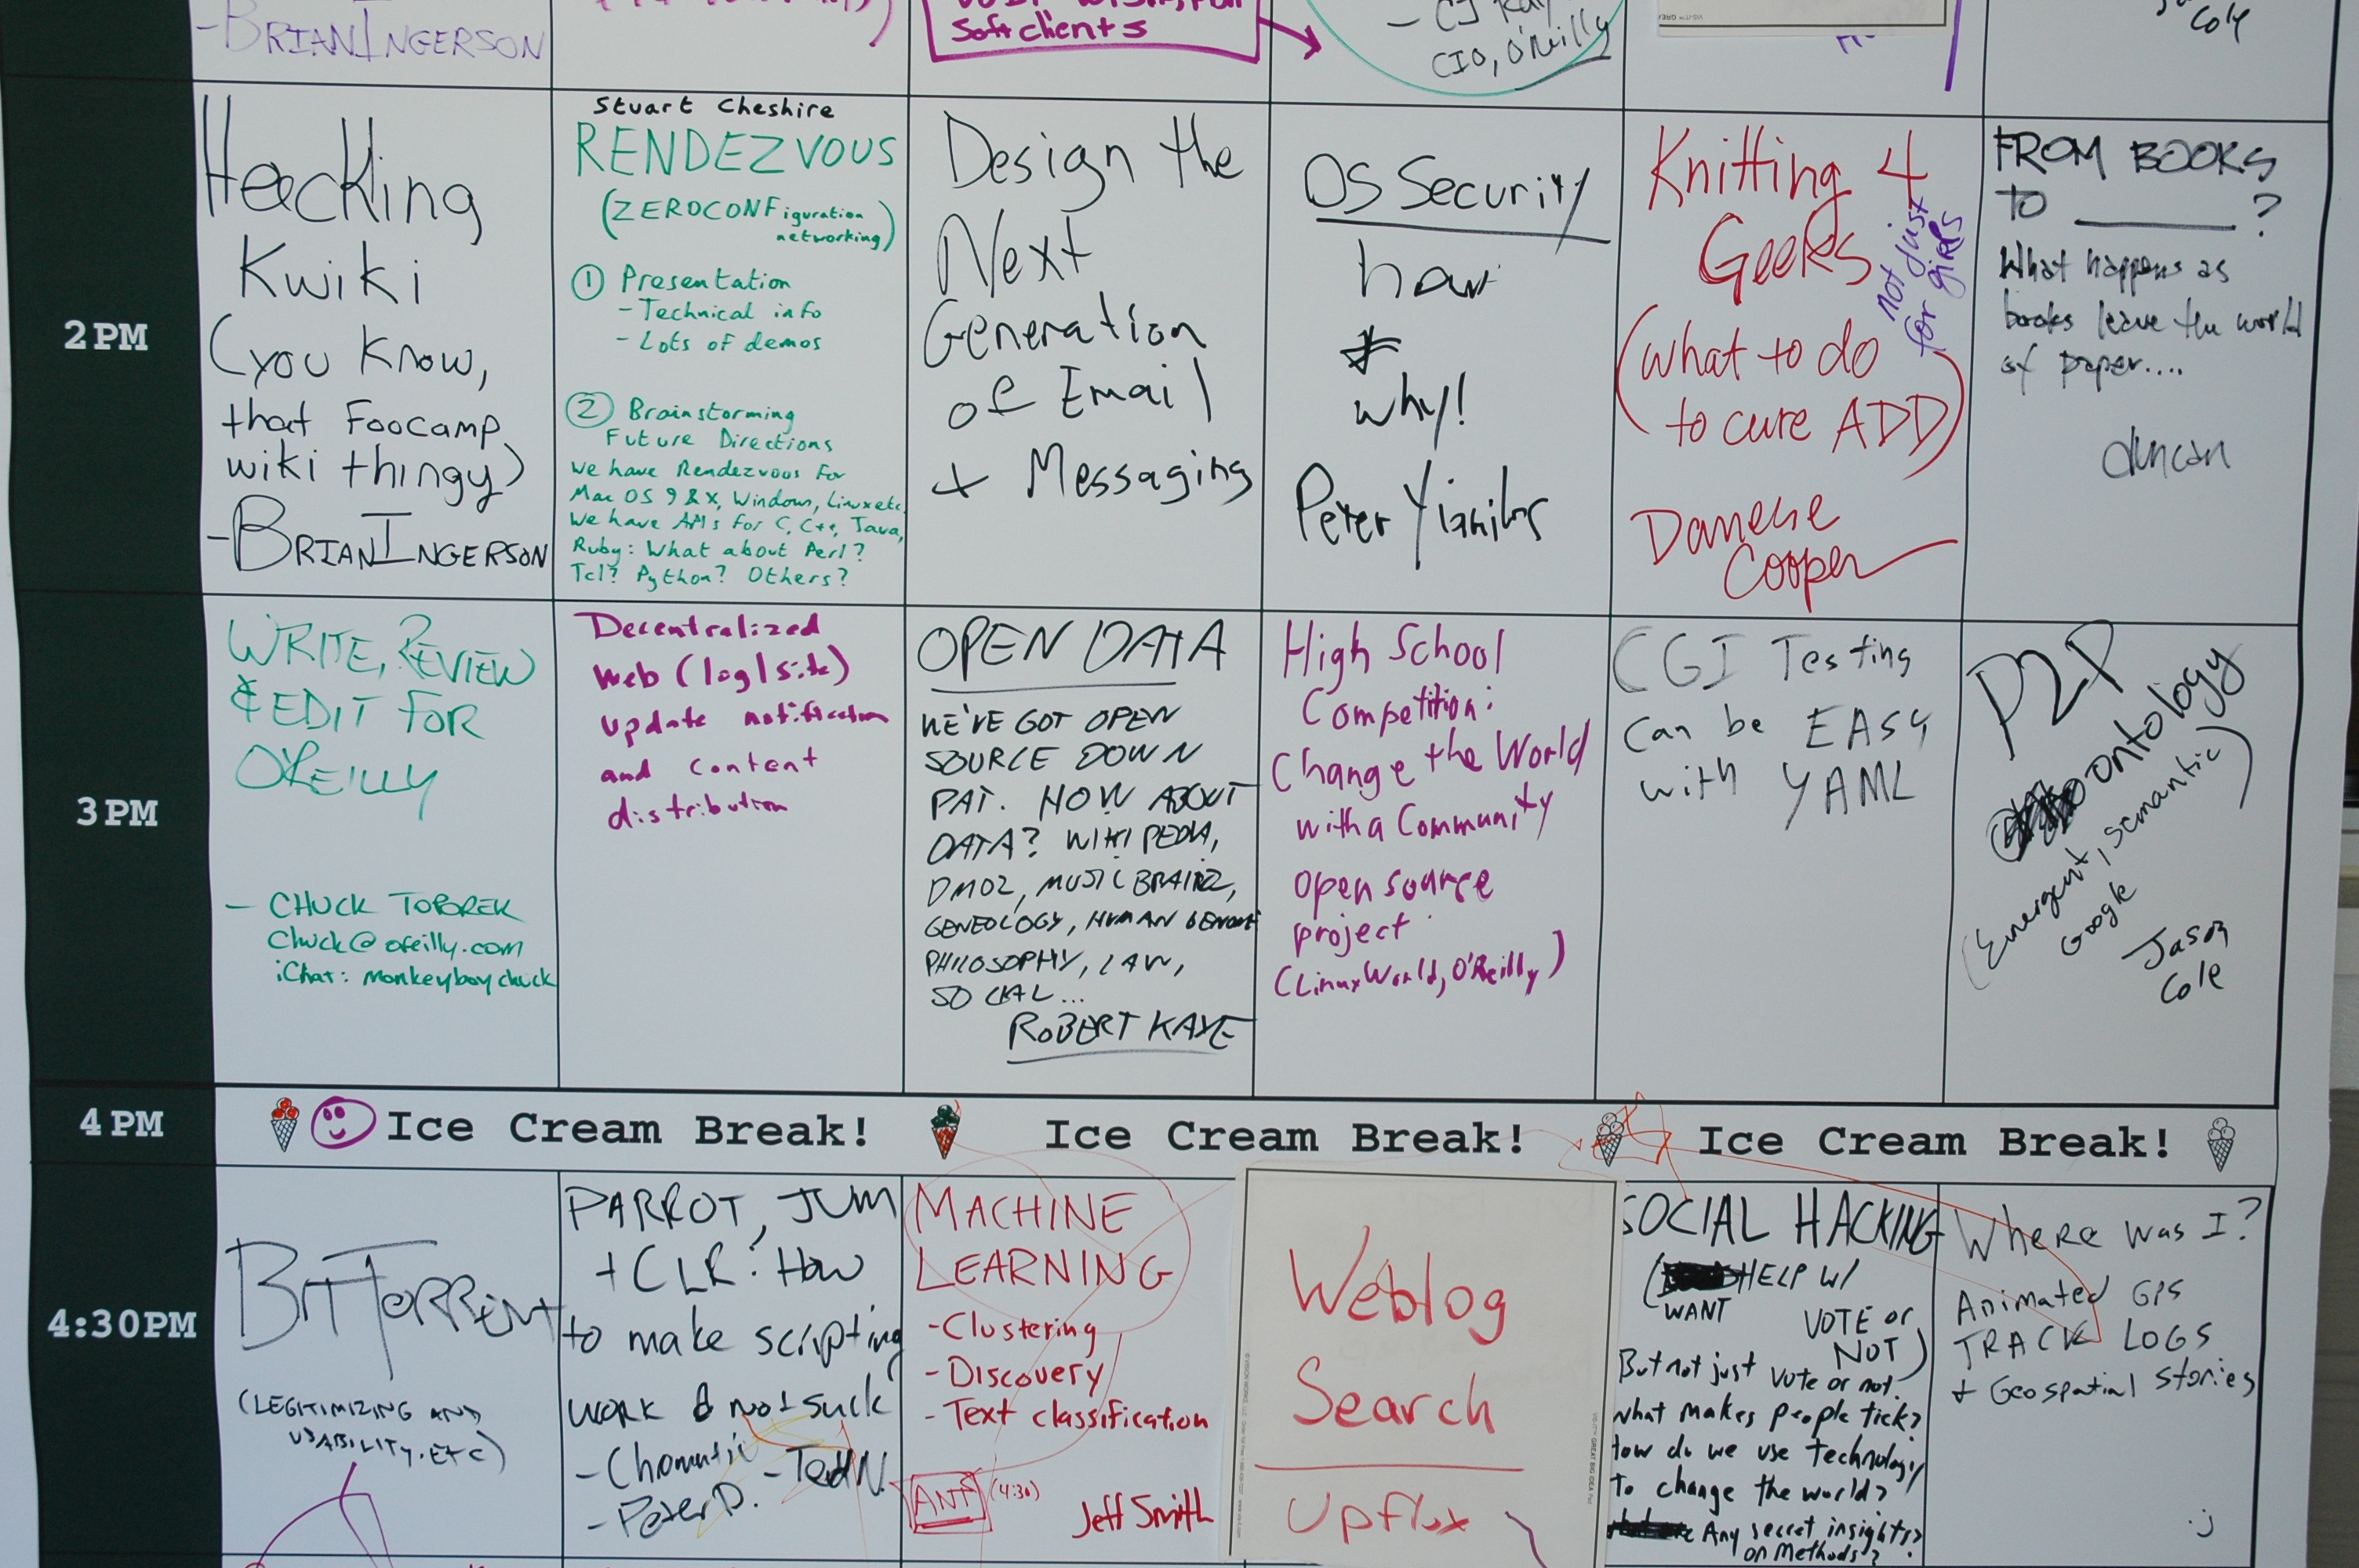 - BRIAN INGERSON
Soft clients
CIO, O'Reilly
Cole
2 PM
Hacking
Kwiki
(you know,
that Foocamp
wiki thingy)
- BRIAN INGERSON
Stuart Cheshire
RENDEZVOUS
(ZEROCONFiguration
networking)
① Presentation
- Technical info
- Lots of demos
② Brainstorming
Future Directions
We have Rendezvous for
Mac OS 9 & X, Windows, Linux etc.
We have APIs for C, C++, Java,
Ruby: What about Perl?
Tcl? Python? Others?
Design the
Next
Generation
of Email
+ Messaging
OS Security
how
&
why!
Peter Yianilos
Knitting 4
Geeks
not just
for girls
(what to do
to cure ADD)
Danese
Cooper
FROM BOOKS
TO ________?
What happens as
books leave the world
of paper....
duncan
3 PM
WRITE, REVIEW
& EDIT FOR
O'REILLY
- CHUCK TOPOREK
chuck@oreilly.com
iChat: monkeyboychuck
Decentralized
Web (log|site)
update notification
and content
distribution
OPEN DATA
WE'VE GOT OPEN
SOURCE DOWN
PAT. HOW ABOUT
DATA? WIKIPEDIA,
DMOZ, MUSICBRAINZ,
GENEOLOGY, HUMAN GENOME
PHILOSOPHY, LAW,
SOCIAL...
ROBERT KAYE
High School
Competition:
Change the World
with a Community
open source
project
(LinuxWorld, O'Reilly)
CGI Testing
can be EASY
with YAML
P2P
ontology
(Emergent, semantic)
Google
Jason
Cole
4 PM
Ice Cream Break!
Ice Cream Break!
Ice Cream Break!
4:30PM
BITTORRENT
(LEGITIMIZING AND
USABILITY, ETC)
PARROT, JVM
+ CLR: How
to make scripting
work & not suck
- Chromatic
- Ted N.
- Peter D.
MACHINE
LEARNING
- Clustering
- Discovery
- Text classification
ANT (4:30)
Jeff Smith
Weblog
Search
Upflux
SOCIAL HACKING
(HELP W/
WANT
VOTE or
NOT)
But not just vote or not.
what makes people tick?
How do we use technology
to change the world?
Any secret insights?
on methods?
Where was I?
Animated GPS
TRACK LOGS
+ Geospatial stories
:)